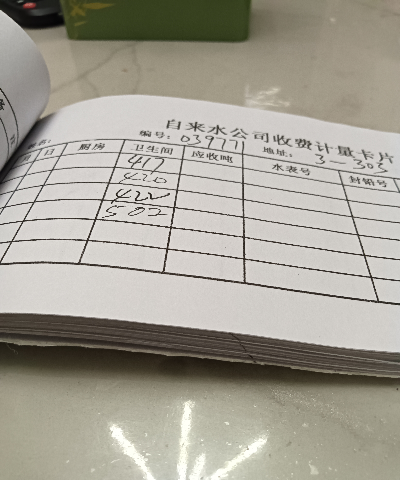 自来水公司收费计量卡片
编号: 039771 地址: 3-303
月 日 厨房 卫生间 应收吨 水表号 封铅号
417
420
422
502